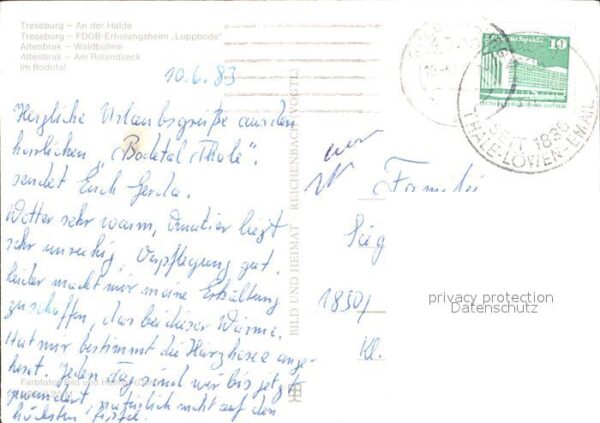 Treseburg – An der Halde
Treseburg – FDGB-Erholungsheim „Luppbode"
Altenbrak – Waldbühne
Altenbrak – Am Rolandseck
im Bodetal
10.6.83
Herzliche Urlaubsgrüße aus den
herrlichen „Bodetal Thale".
sendet Euch Gerda.
Wetter sehr warm, Quatier liegt
sehr unruhig, Verpflegung gut,
leider macht mir meine Erkältung
zuschaffen, das bei dieser Wärme.
Hat mir bestimmt die Harzhexe ange-
hext. Jeden Tag sind wir bis jetzt
gewandert, natürlich nicht auf den
höchsten Gipfel.
BILD UND HEIMAT REICHENBACH (VOGTL)
10
SEIT 1836
THALE-LÖWEN-EMAIL
Familie
1830
Kl.
privacy protection
Datenschutz